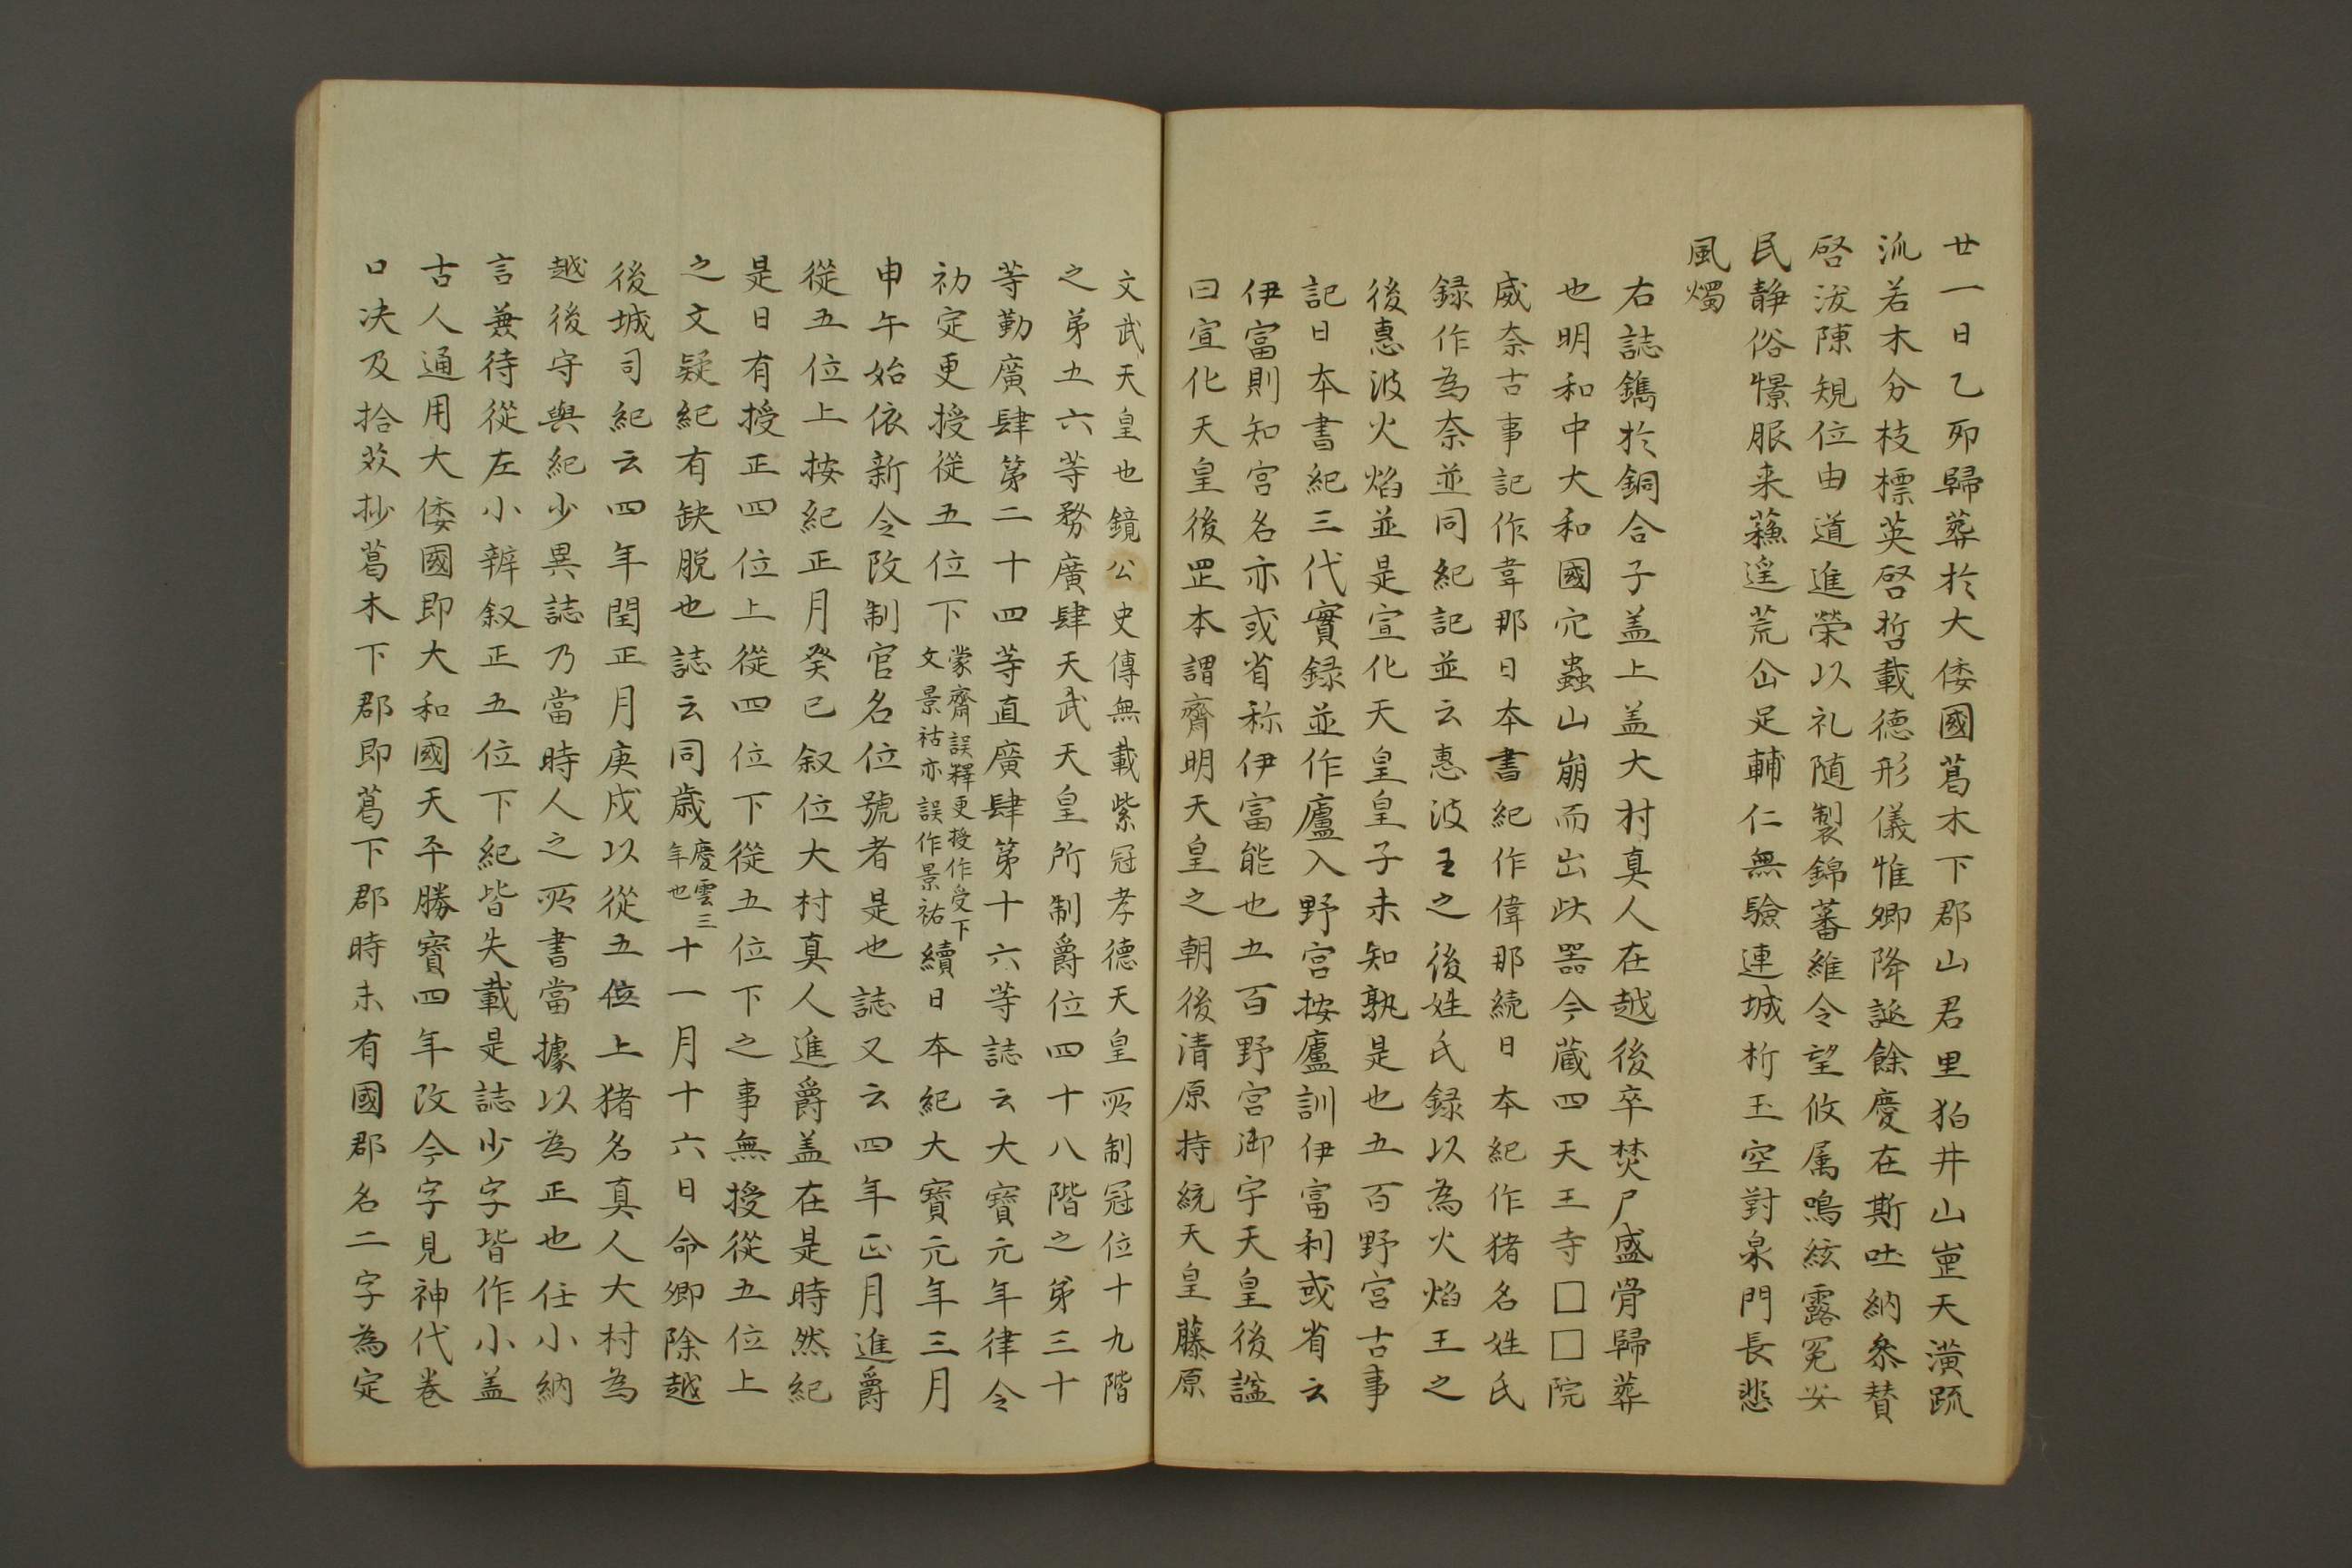 廿一日乙夘歸葬於大倭國葛木下郡山君里狛井山崗天潢疏
派若木分枝標英啓哲載德形儀惟卿降誕餘慶在斯吐納叅賛
啓沃陳規位由道進榮以礼随製錦蕃維令望攸属鳴絃露冕安
民静俗憬服来蘓遥荒企足輔仁無驗連城析玉空對泉門長悲
風燭
右誌鐫於銅合子盖上盖大村真人在越後卒焚尸盛骨歸葬
也明和中大和國穴蟲山崩而出此器今蔵四天王寺□□院
威奈古事記作韋那日本書紀作偉那続日本紀作猪名姓氏
録作為奈並同紀記並云惠波王之後姓氏録以為火焰王之
後惠波火焰並是宣化天皇皇子未知孰是也五百野宮古事
記日本書紀三代實録並作廬入野宮按廬訓伊富利或省云
伊富則知宮名亦或省称伊富能也五百野宮御宇天皇後諡
曰宣化天皇後罡本謂齊明天皇之朝後清原持統天皇藤原
文武天皇也鏡公史傳無載紫冠孝德天皇所制冠位十九階
之第五六等務廣肆天武天皇所制爵位四十八階之第三十
等勤廣肆第二十四等直廣肆第十六等誌云大寶元年律令
初定更授從五位下蒙齋誤釋更授作受下文景祜亦誤作景祐續日本紀大寶元年三月
申午始依新令改制官名位號者是也誌又云四年正月進爵
從五位上按紀正月癸已叙位大村真人進爵盖在是時然紀
是日有授正四位上從四位下從五位下之事無授從五位上
之文疑紀有缺脱也誌云同歳慶雲三年也十一月十六日命卿除越
後城司紀云四年閏正月庚戍以從五位上猪名真人大村為
越後守與紀少異誌乃當時人之所書當據以為正也任小納
言兼待從左小辨叙正五位下紀皆失載是誌少字皆作小盖
古人通用大倭國即大和國天平勝寶四年改今字見神代巻
口决及拾芥抄葛木下郡即葛下郡時未有國郡名二字為定